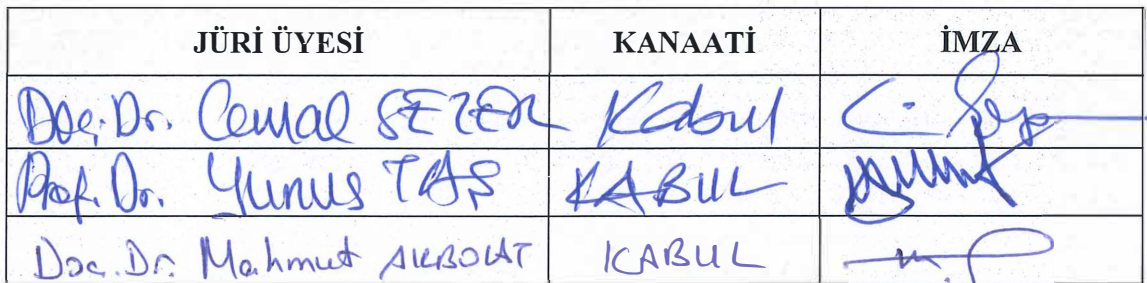 JÜRİ ÜYESİ KANAATİ İMZA
Doç. Dr. Cemal SEZER Kabul
Prof. Dr. Yunus TAŞ KABUL
Doç. Dr. Mahmut AKBOLAT KABUL